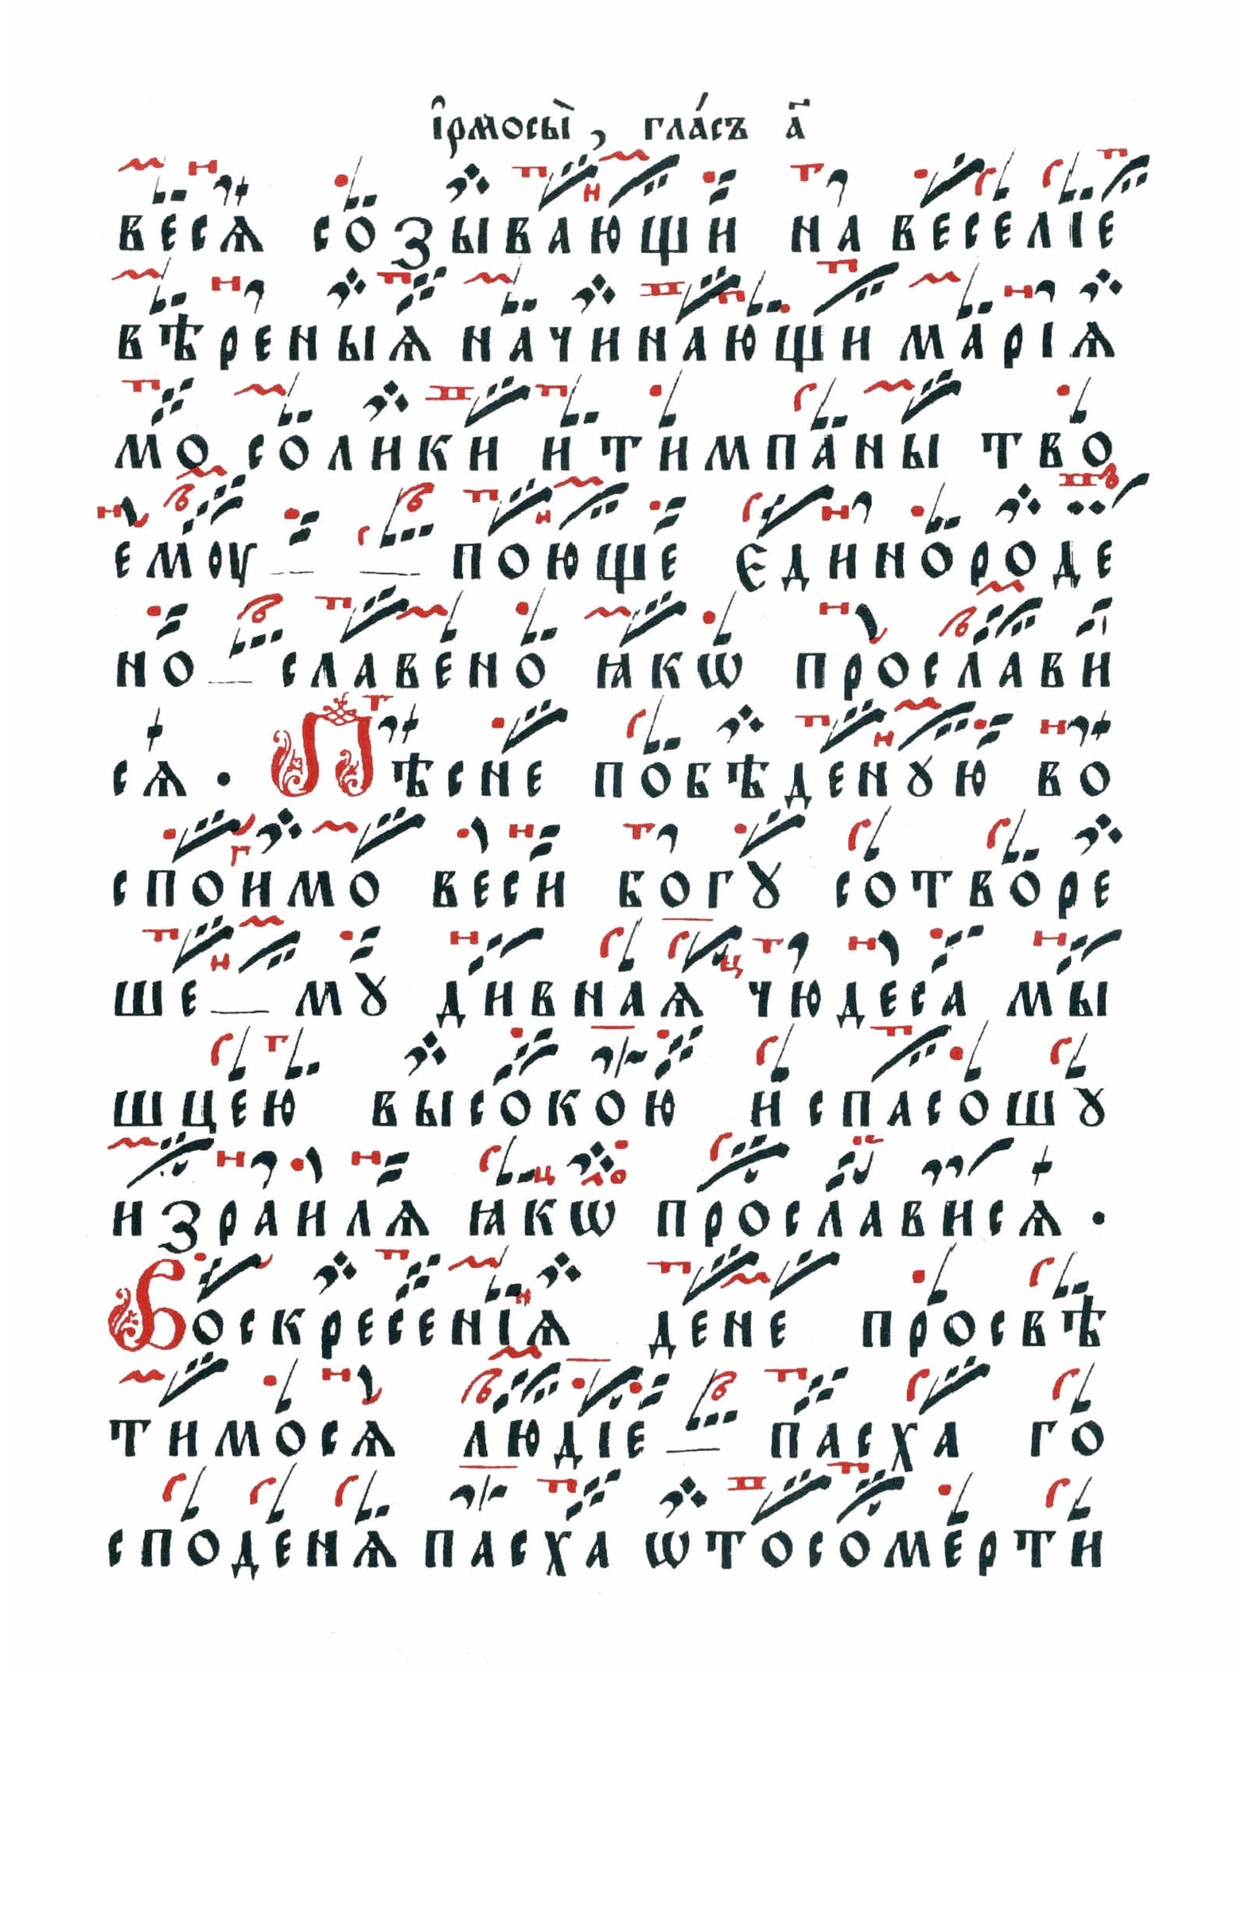 і҆рмосы̀, гла́съ а҃
весѧ созывающи на веселіе
вѣреныѧ начинающи маріѧ
мо солики и тимпаны тво
емѹ поюще единороде
но славено ꙗкѡ прослави
сѧ. Пѣсне побѣденꙋю во
споимо веси богꙋ сотворе
ше мꙋ дивнаѧ чюдеса мы
шцею высокою и спасошꙋ
израилѧ ꙗкѡ прослависѧ.
Воскресеніѧ дене просвѣ
тимосѧ людіе пасха го
споденѧ пасха ѡтосомерти